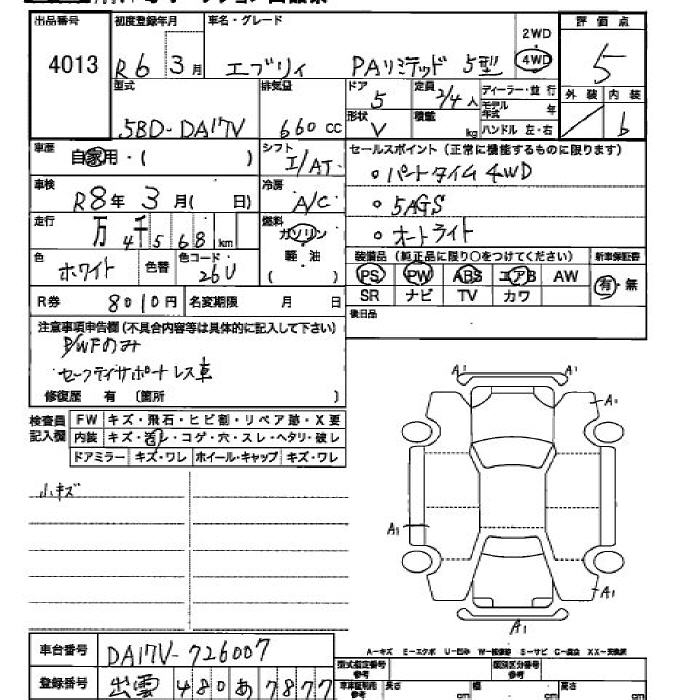 出品番号 初度登録年月 車名・グレード 2WD 評価点
4013 R6 3月 エブリィ PAリミテッド 5型 4WD 5
型式 排気量 ドア 5 定員 2/4人 ディーラー・並行 外装 内装
5BD-DA17V 660cc 形状 V 積載 kg モデル年式 年 ハンドル 左・右 b
車歴 自家用・( ) シフト I/AT セールスポイント (正常に機能するものに限ります)
。パートタイム4WD
車検 R8年 3月( 日) 冷房 A/C 。5AGS
走行 万 4千 5 6 8 km 燃料 ガソリン 。オートライト
色 ホワイト 色替 色コード 26U 軽油 ( ) 装備品 (純正品に限り○をつけてください) 新車保証書
PS PW ABS エアB AW 有・無
R券 8010円 名変期限 月 日 SR ナビ TV カワ
注意事項申告欄(不具合内容等は具体的に記入して下さい) 後日品
P/WFのみ
セーフティサポートレス車
修復歴 有 (箇所 )
検査員記入欄 FW キズ・飛石・ヒビ割・リペア跡・X要
内装 キズ・汚レ・コゲ・穴・スレ・ヘタリ・破レ
ドアミラー キズ・ワレ ホイール・キャップ キズ・ワレ
小キズ
A1 A1
A1
A1
A1
A1
車台番号 DA17V-726007
A-キズ E-エクボ U-凹み
登録番号 出雲 480 あ 7877
型式指定番号 参考 類別区分番号 参考
長さ cm 幅 cm 高さ cm